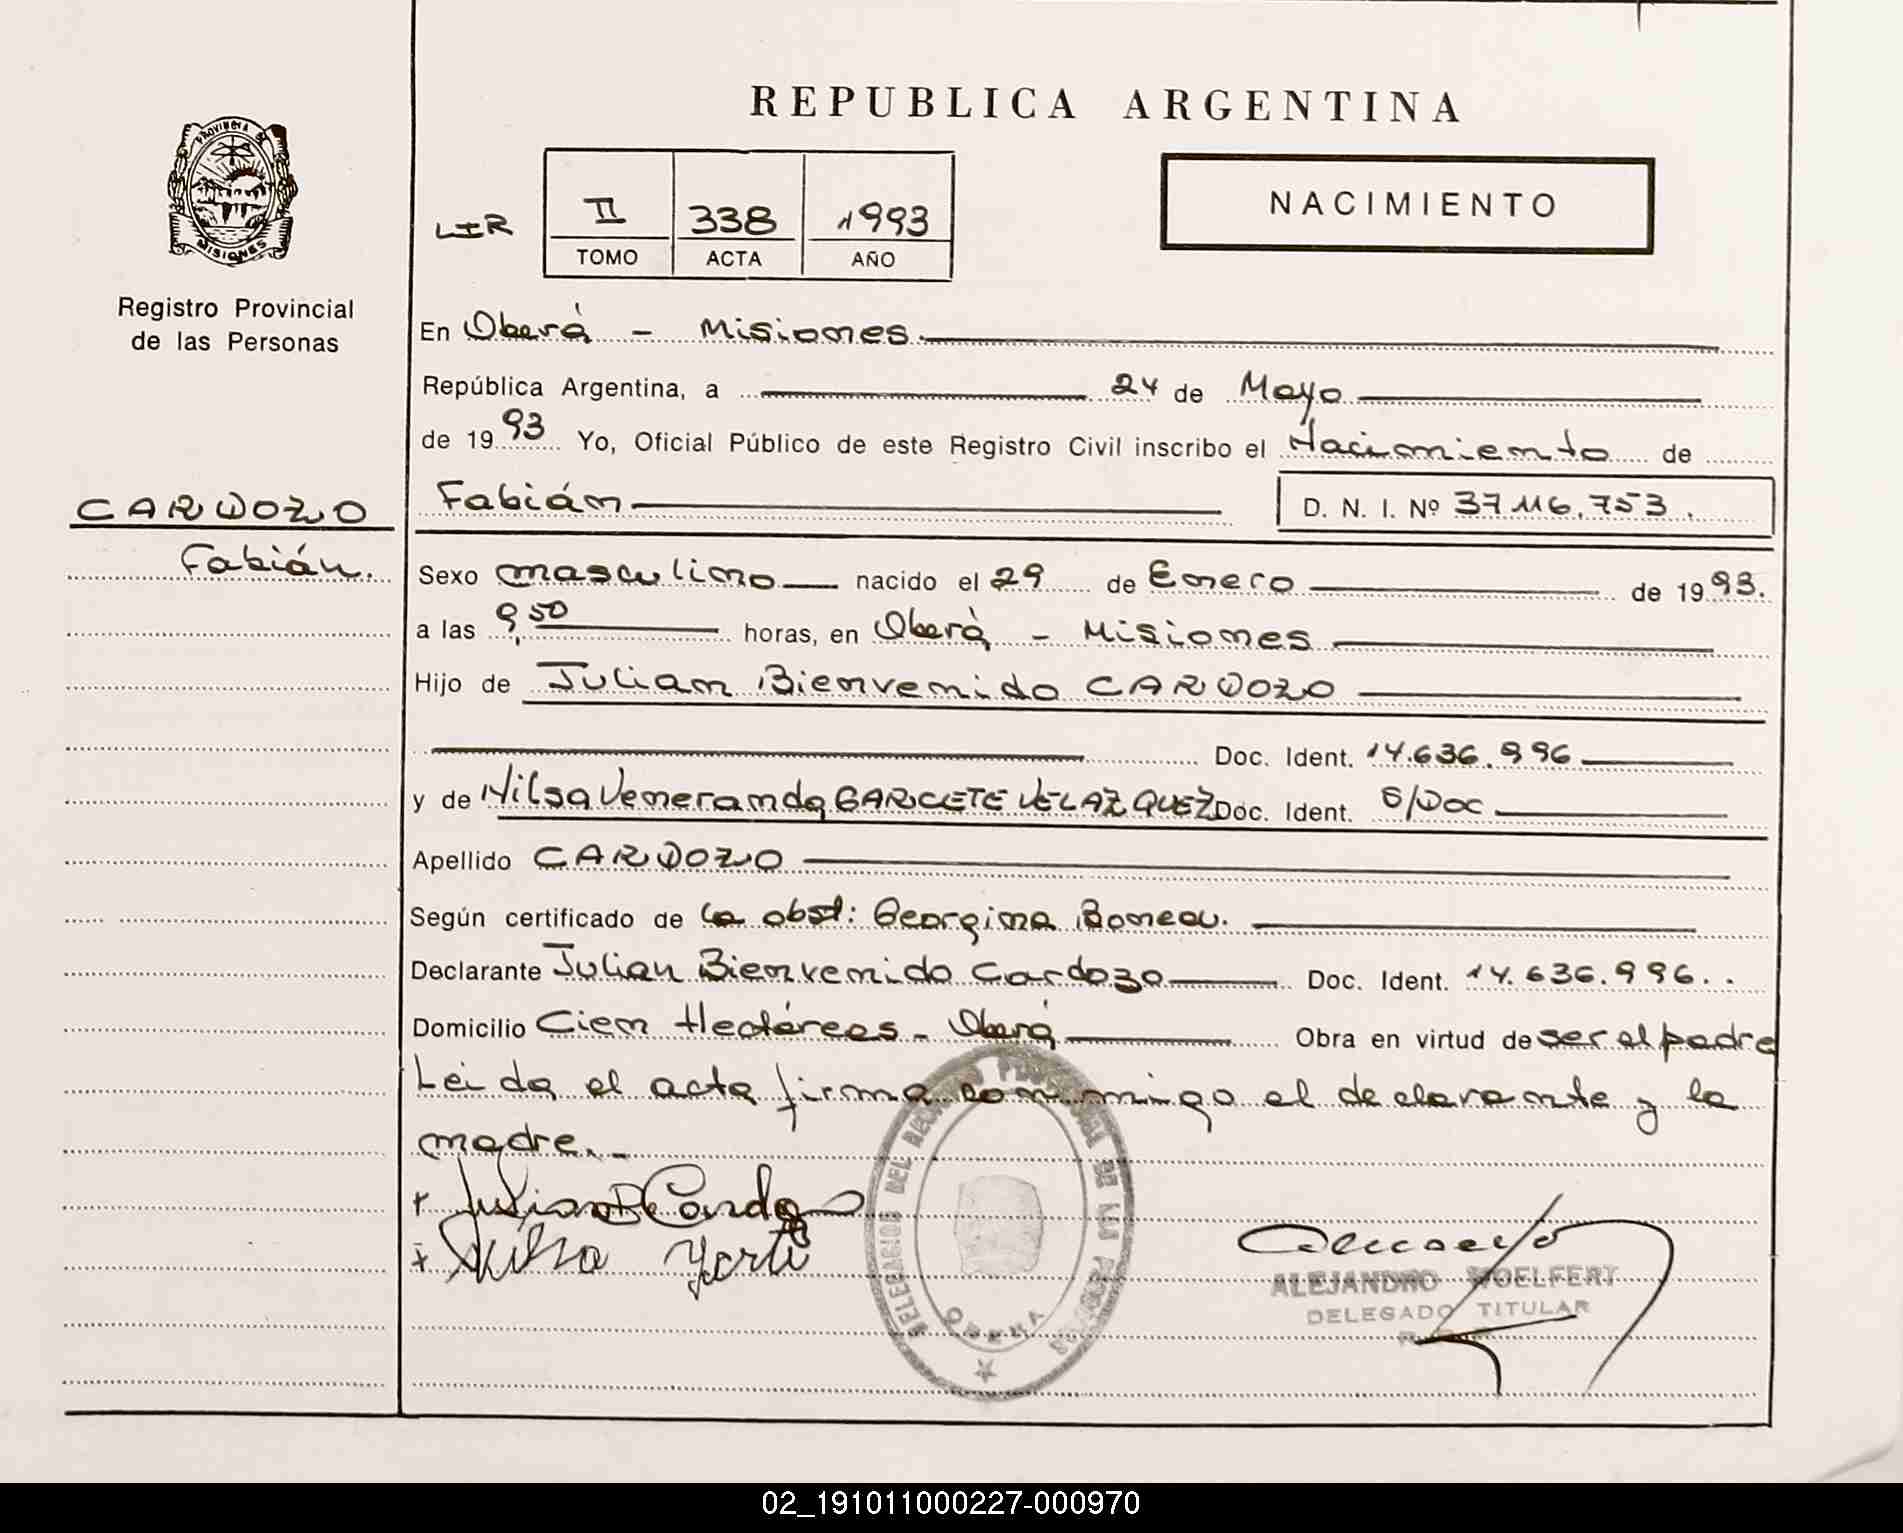 REPUBLICA ARGENTINA
PROVINCIA DE
MISIONES
Registro Provincial
de las Personas
LIR
II 338 1993
TOMO ACTA AÑO
NACIMIENTO
En Oberá - Misiones
República Argentina, a 24 de Mayo
de 1993 Yo, Oficial Público de este Registro Civil inscribo el Nacimiento de
CARDOZO
Fabián.
Fabián D. N. I. Nº 37.116.753.
Sexo masculino nacido el 29 de Enero de 1993.
a las 9,50 horas, en Oberá - Misiones
Hijo de Julian Bienvenido CARDOZO
Doc. Ident. 14.636.996
y de Nilsa Veneranda GARCETE VELAZQUEZ Doc. Ident. S/Doc
Apellido CARDOZO
Según certificado de la obst: Georgina Boneau.
Declarante Julian Bienvenido Cardozo Doc. Ident. 14.636.996..
Domicilio Cien Hectáreas - Oberá Obra en virtud de ser el padre
Leida el acta firma conmigo el declarante y la
madre.-
Julian B Cardozo
DELEGACION DEL REGISTRO PROVINCIAL DE LAS PERSONAS
OBERA
ALEJANDRO WOELFERT
DELEGADO TITULAR
02_191011000227-000970